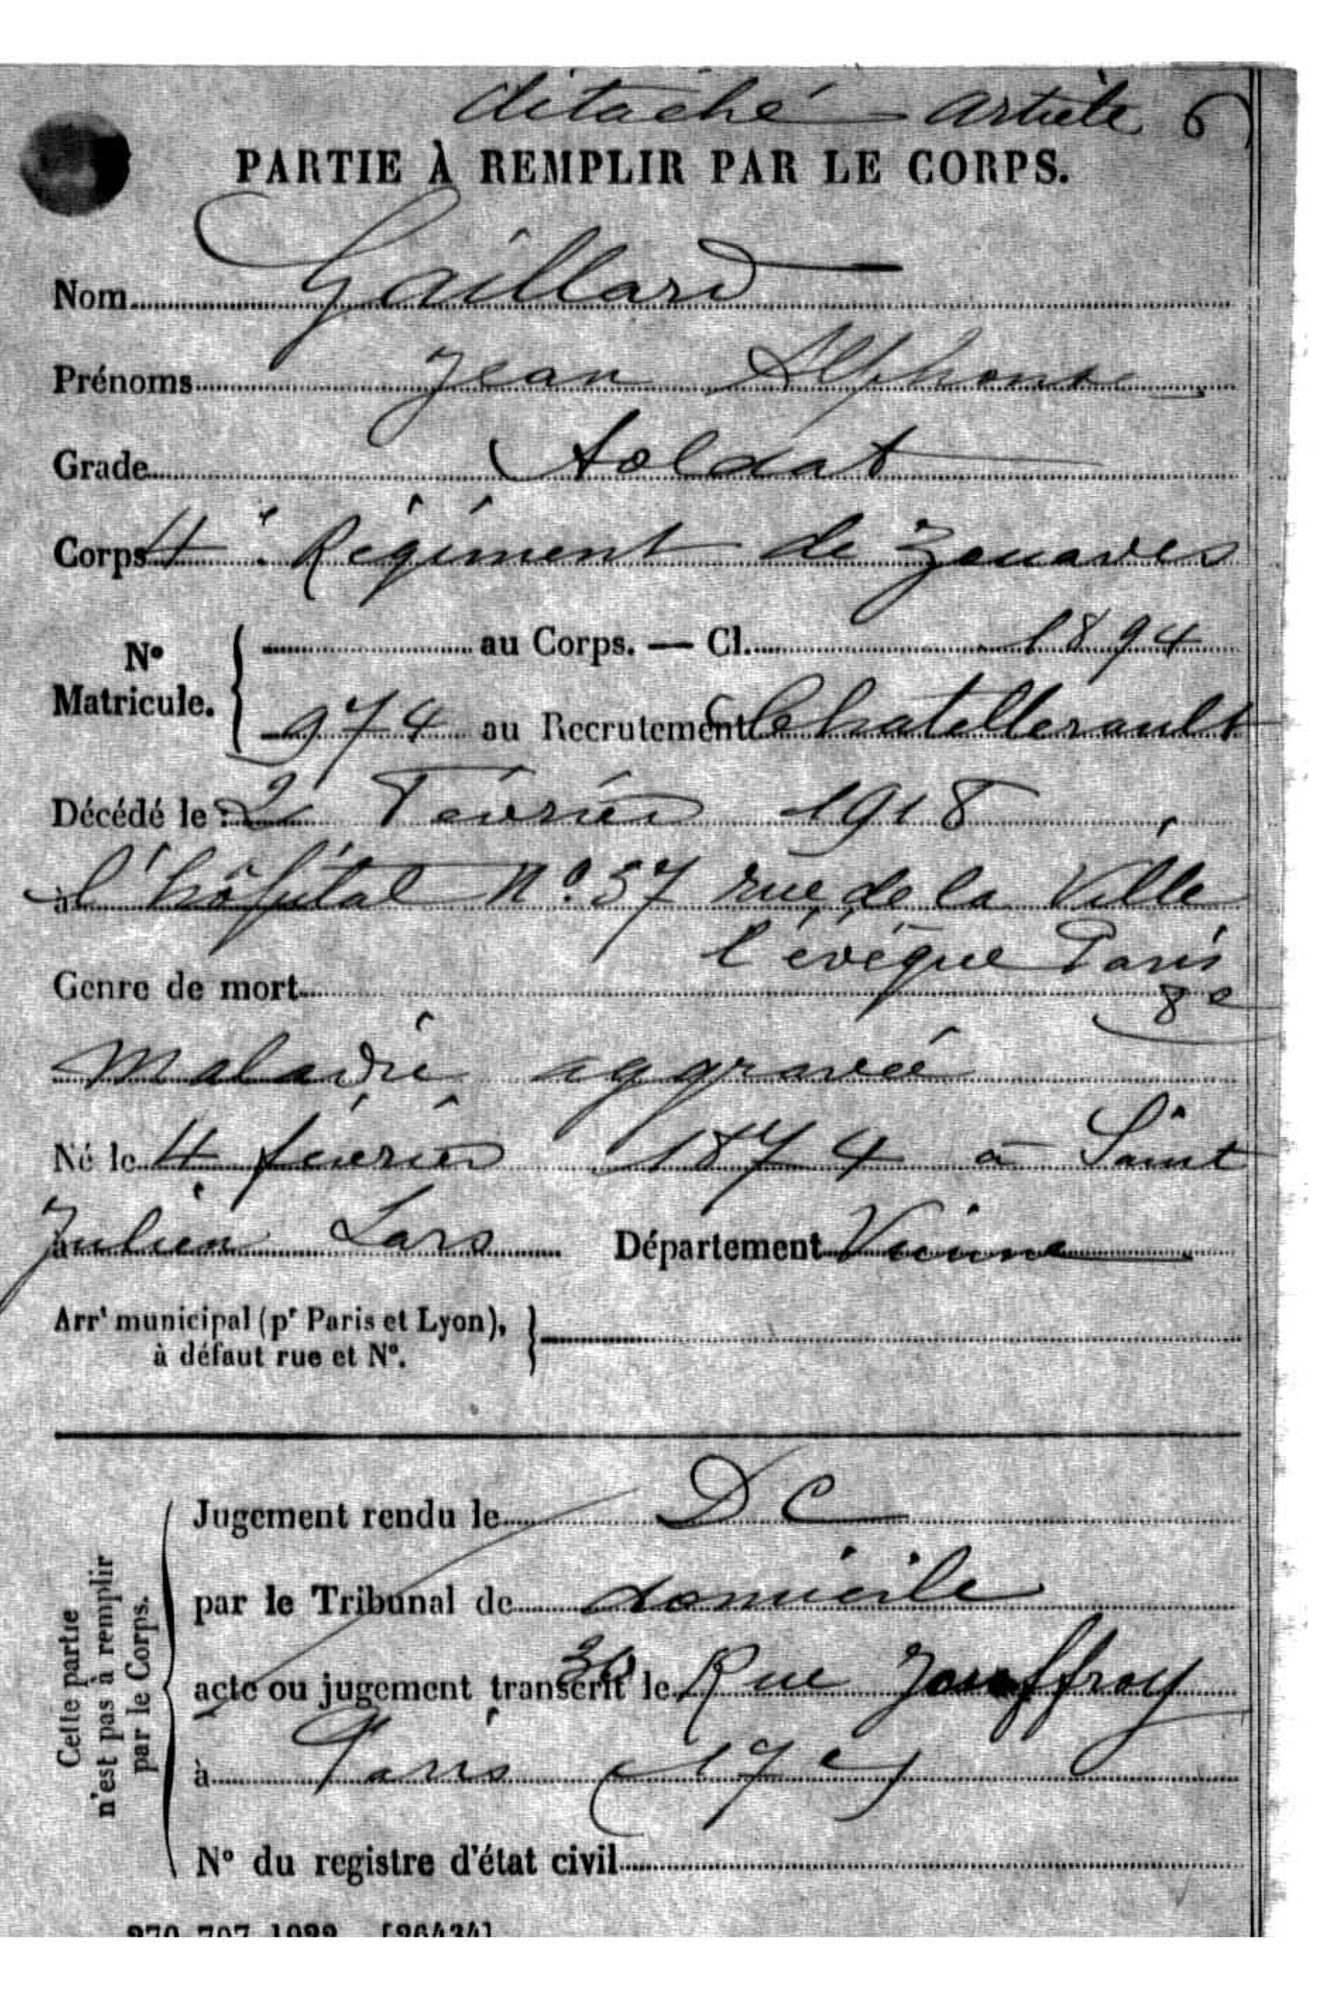 détaché article 6
PARTIE À REMPLIR PAR LE CORPS.
Nom Gaillard
Prénoms Jean Alphonse
Grade Soldat
Corps 4e Régiment de Zouaves
N° Matricule. { au Corps. — Cl. 1894
974 au Recrutement Chatellerault
Décédé le 2 Février 1918
à l'hôpital N° 57 rue de la Ville
l'évêque Paris
8e
Genre de mort
maladie aggravée
Né le 4 février 1874 à Saint
à Julien Lars Département Vienne
Arrt municipal (pr Paris et Lyon), }
à défaut rue et N°.
Cette partie
n'est pas à remplir
par le Corps.
Jugement rendu le DC
par le Tribunal de domicile
acte ou jugement transcrit le 30 Rue Jouffroy
à Paris (17e)
N° du registre d'état civil
270-707-1922 [26434]